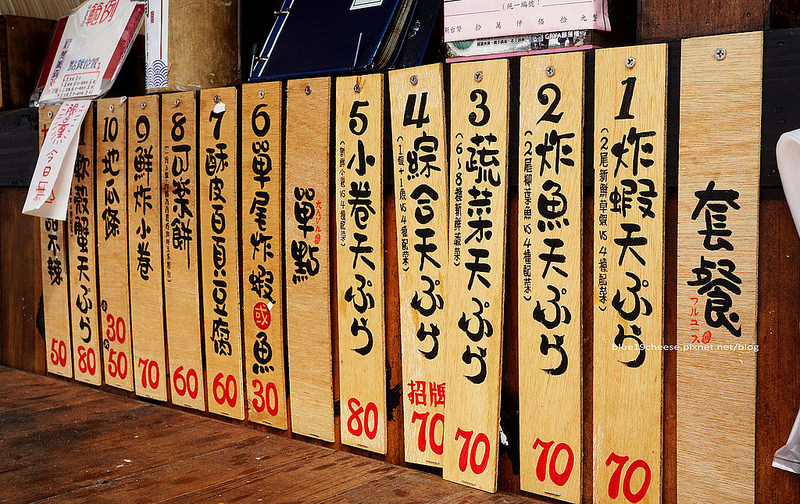 套餐
フルコース
1炸蝦天ぷら
(2尾新鮮草蝦VS4種配菜)
70
2炸魚天ぷら
(2尾柳葉魚VS4種配菜)
70
3蔬菜天ぷら
(6~8種新鮮蔬菜)
70
4綜合天ぷら
(1蝦+1魚VS4種配菜)
招牌
70
5小卷天ぷら
(新鮮小卷VS4種配菜)
80
單點
6單尾炸蝦或魚
30
7酥皮百頁豆腐
60
8可樂餅
60
9鮮炸小卷
70
10地瓜條
小30
大50
軟殼蟹天ぷら
80
不辣
50
今日無
範例
(統一編號)
拾 萬 仟 佰 拾 元整
blue19cheese.pixnet.net/blog